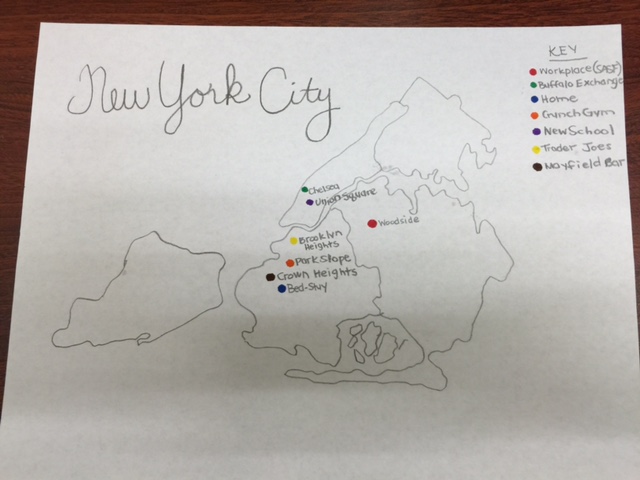 New York City
KEY
Workplace
Buffalo Exchange
Home
Crunch Gym
New School
Trader Joes
Mayfield Bar
Chelsea
Union Square
Woodside
Brooklyn
Heights
Park Slope
Crown Heights
Bed-Stuy